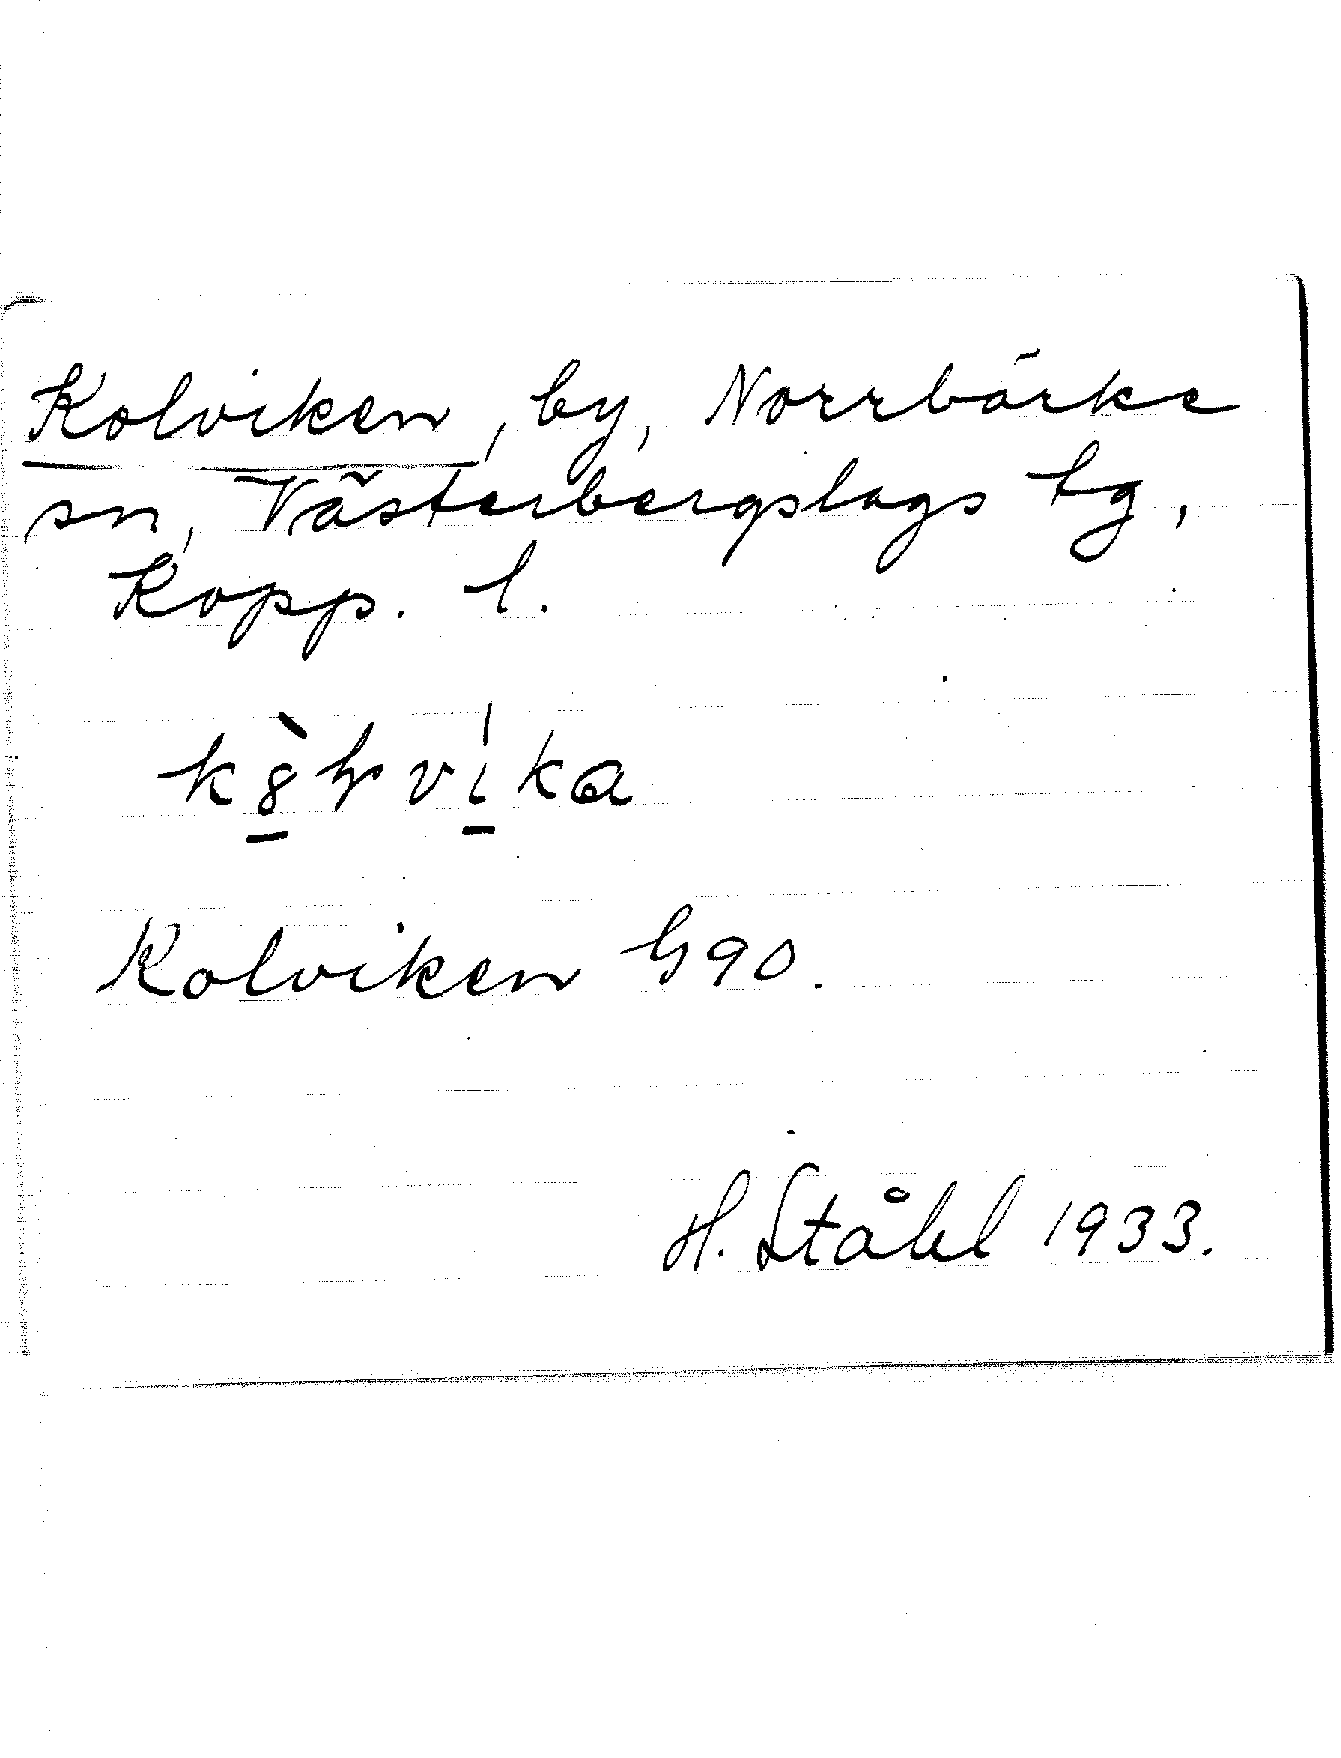 Kolviken, by, Norrbärke
sn, Västerbergslags tg,
Kopp. l.
Kolviken G90.
H. Ståhl 1933.